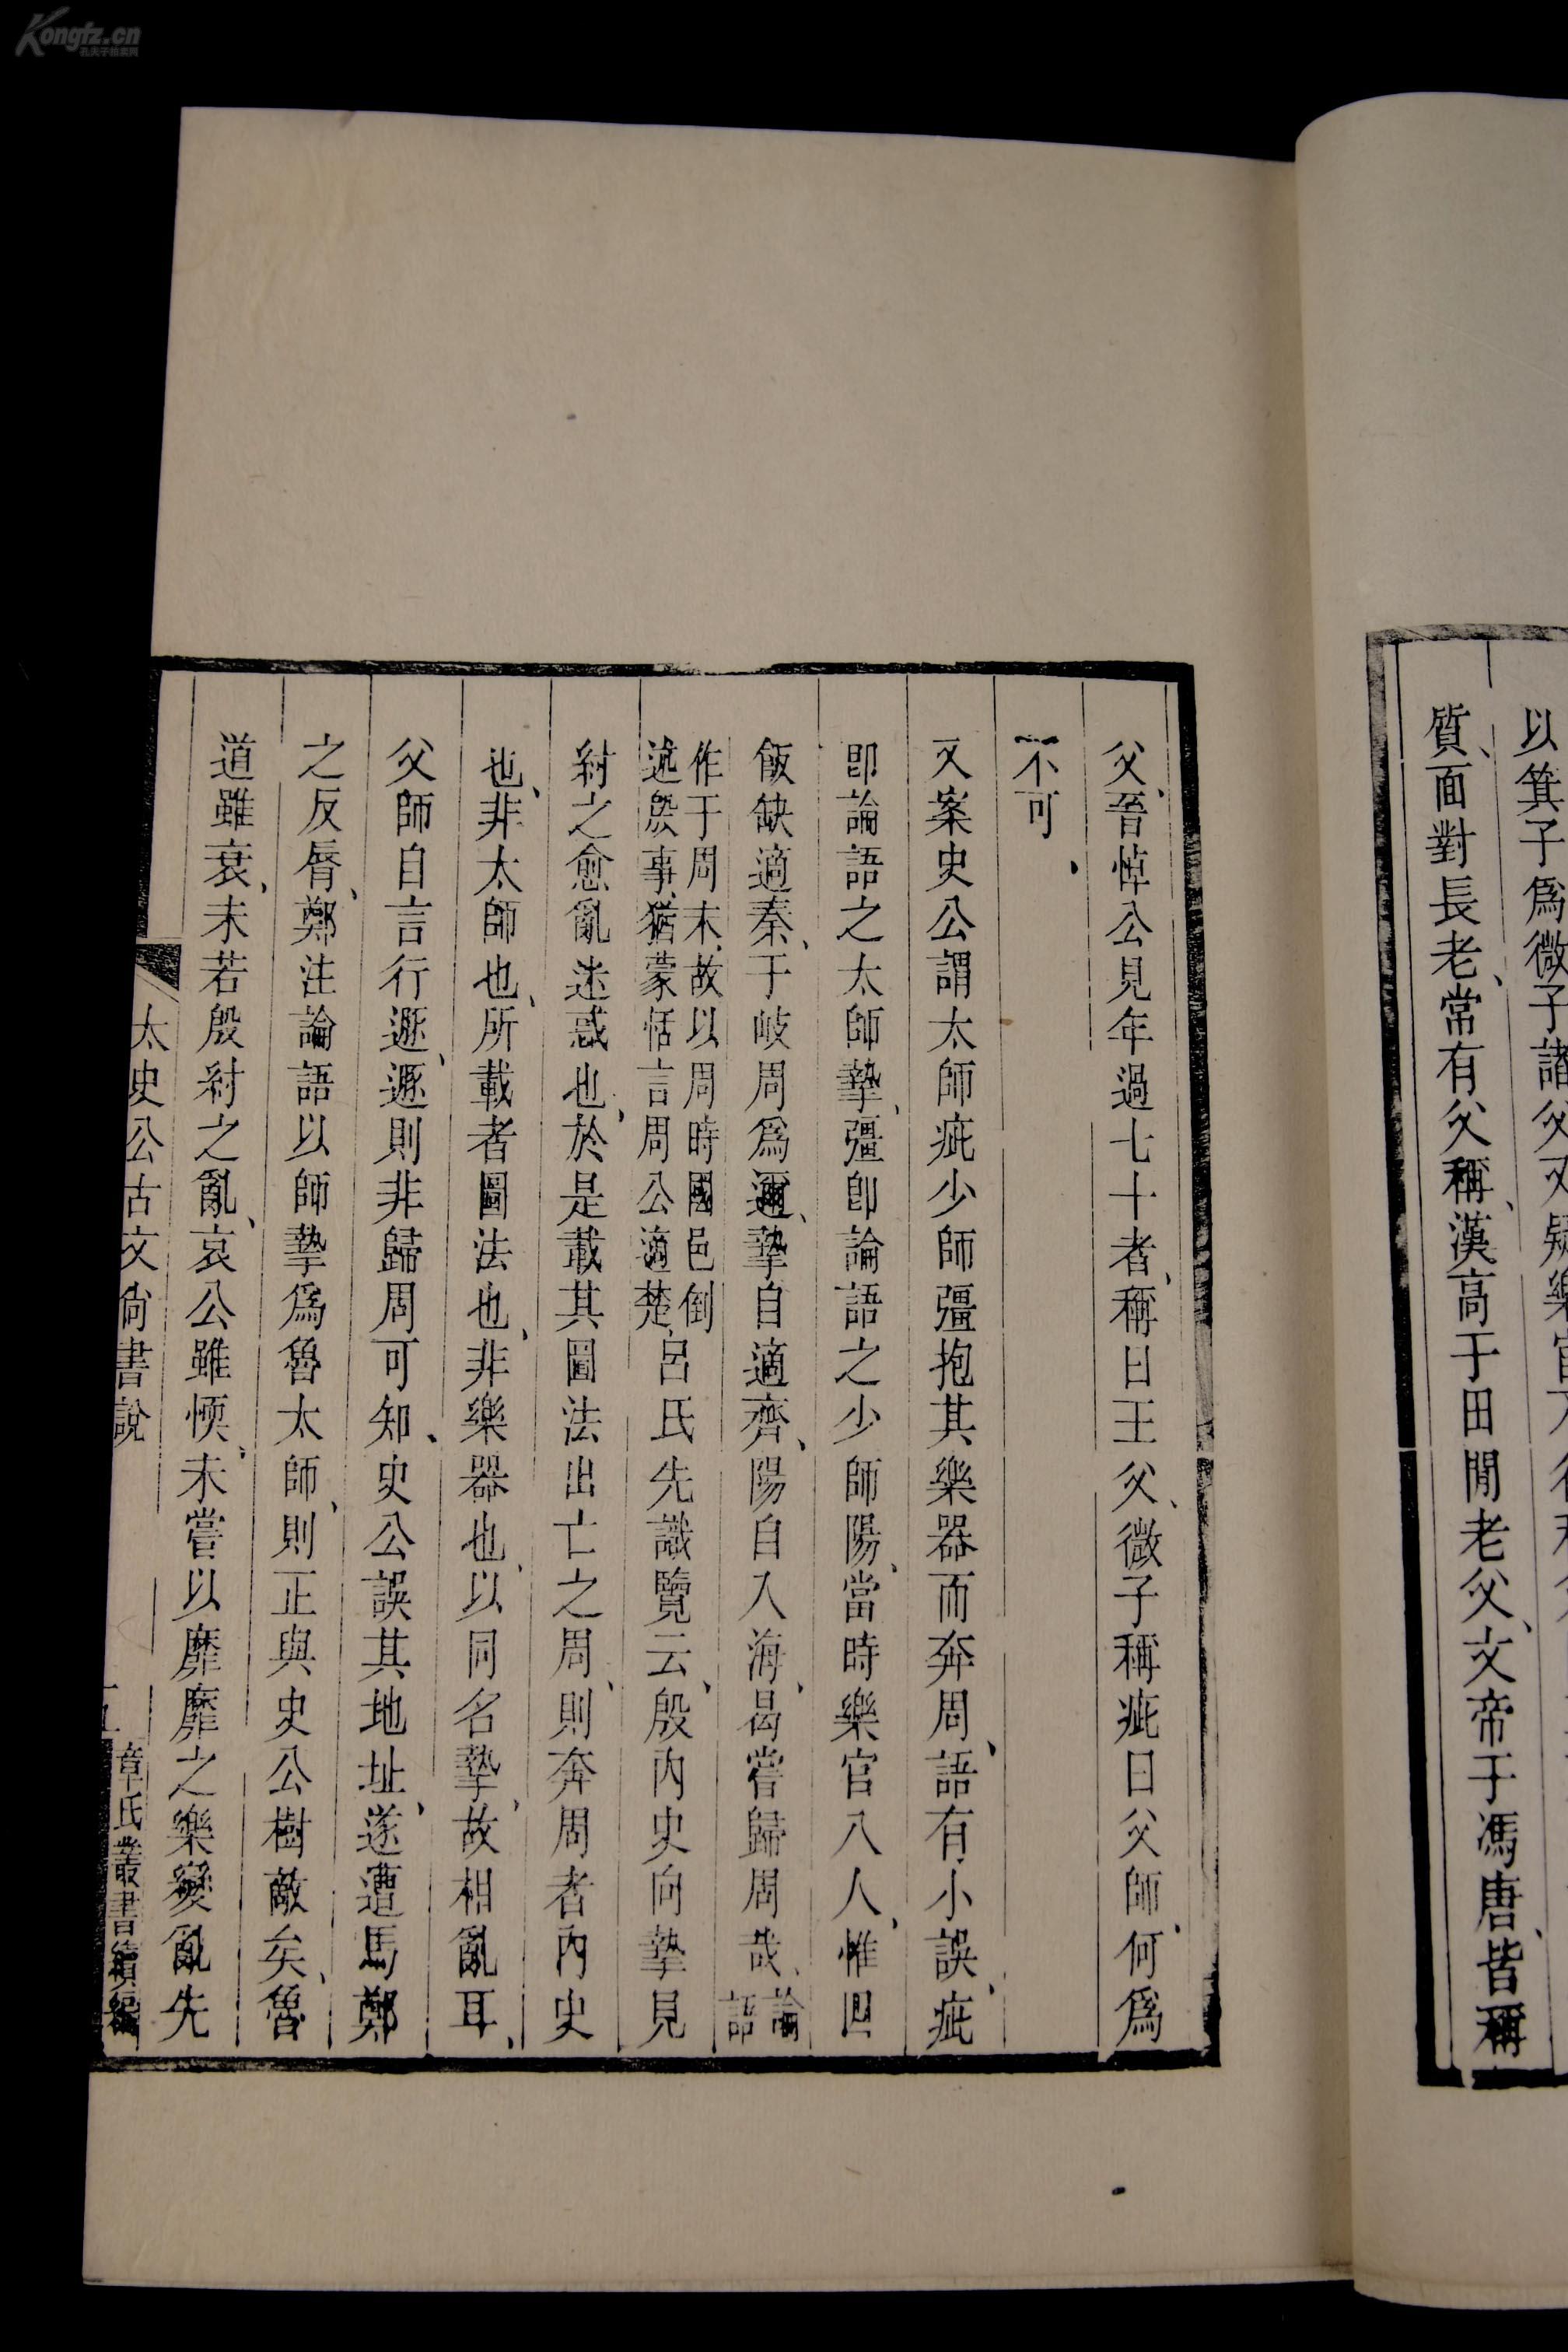 Kongfz.cn
孔夫子拍卖网
以箕子爲微子諸父又疑樂官
質、面對長老、常有父稱、漢高于田閒老父、文帝于馮唐、皆稱
父、晉悼公見年過七十者、稱曰王父、微子稱疵曰父師、何爲
不可、
又案史公謂太師疵少師彊抱其樂器而奔周、語有小誤、疵
卽論語之太師摯、彊卽論語之少師陽、當時樂官八人、惟四
飯缺適秦、于岐周爲邇、摯自適齊、陽自入海、曷嘗歸周哉、論語
作于周末、故以周時國邑倒
述殷事、猶蒙恬言周公適楚、呂氏先識覽云、殷內史向摯見
紂之愈亂迷惑也、於是載其圖法出亡之周、則奔周者內史
也、非太師也、所載者圖法也、非樂器也、以同名摯、故相亂耳、
父師自言行遯、遯則非歸周可知、史公誤其地址、遂遭馬鄭
之反脣、鄭注論語以師摯爲魯太師、則正與史公樹敵矣、魯
道雖衰、未若殷紂之亂、哀公雖愞、未嘗以靡靡之樂變亂先
太史公古文尚書說
章氏叢書續編